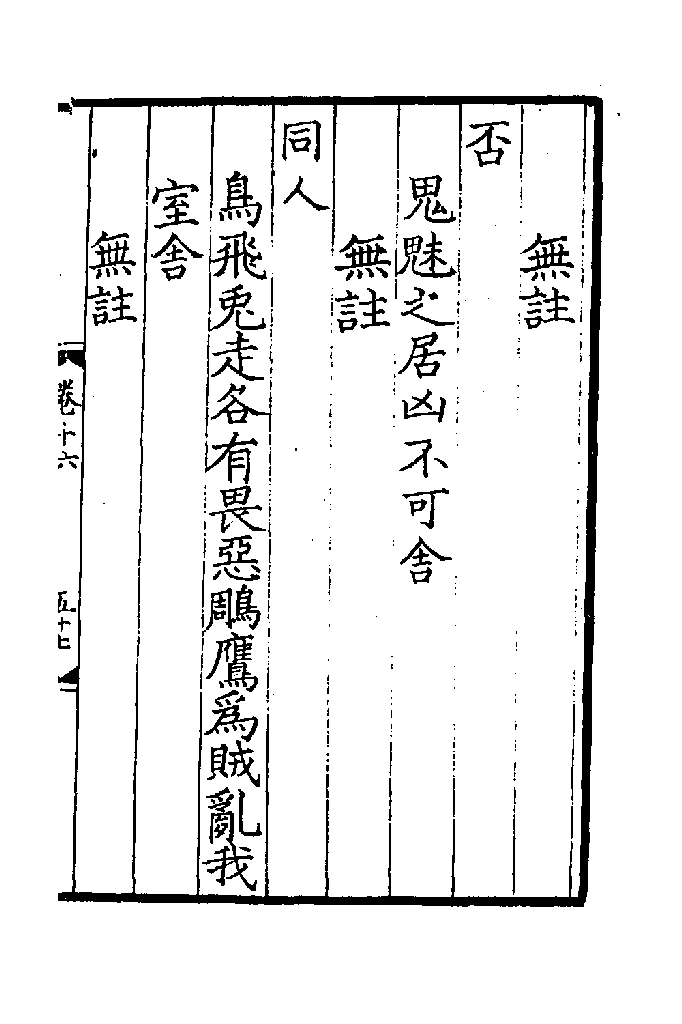 無註
否
鬼魅之居凶不可舍
無註
同人
鳥飛兎走各有畏惡鵰鷹為賊亂我
室舍
無註
卷十六
五十七